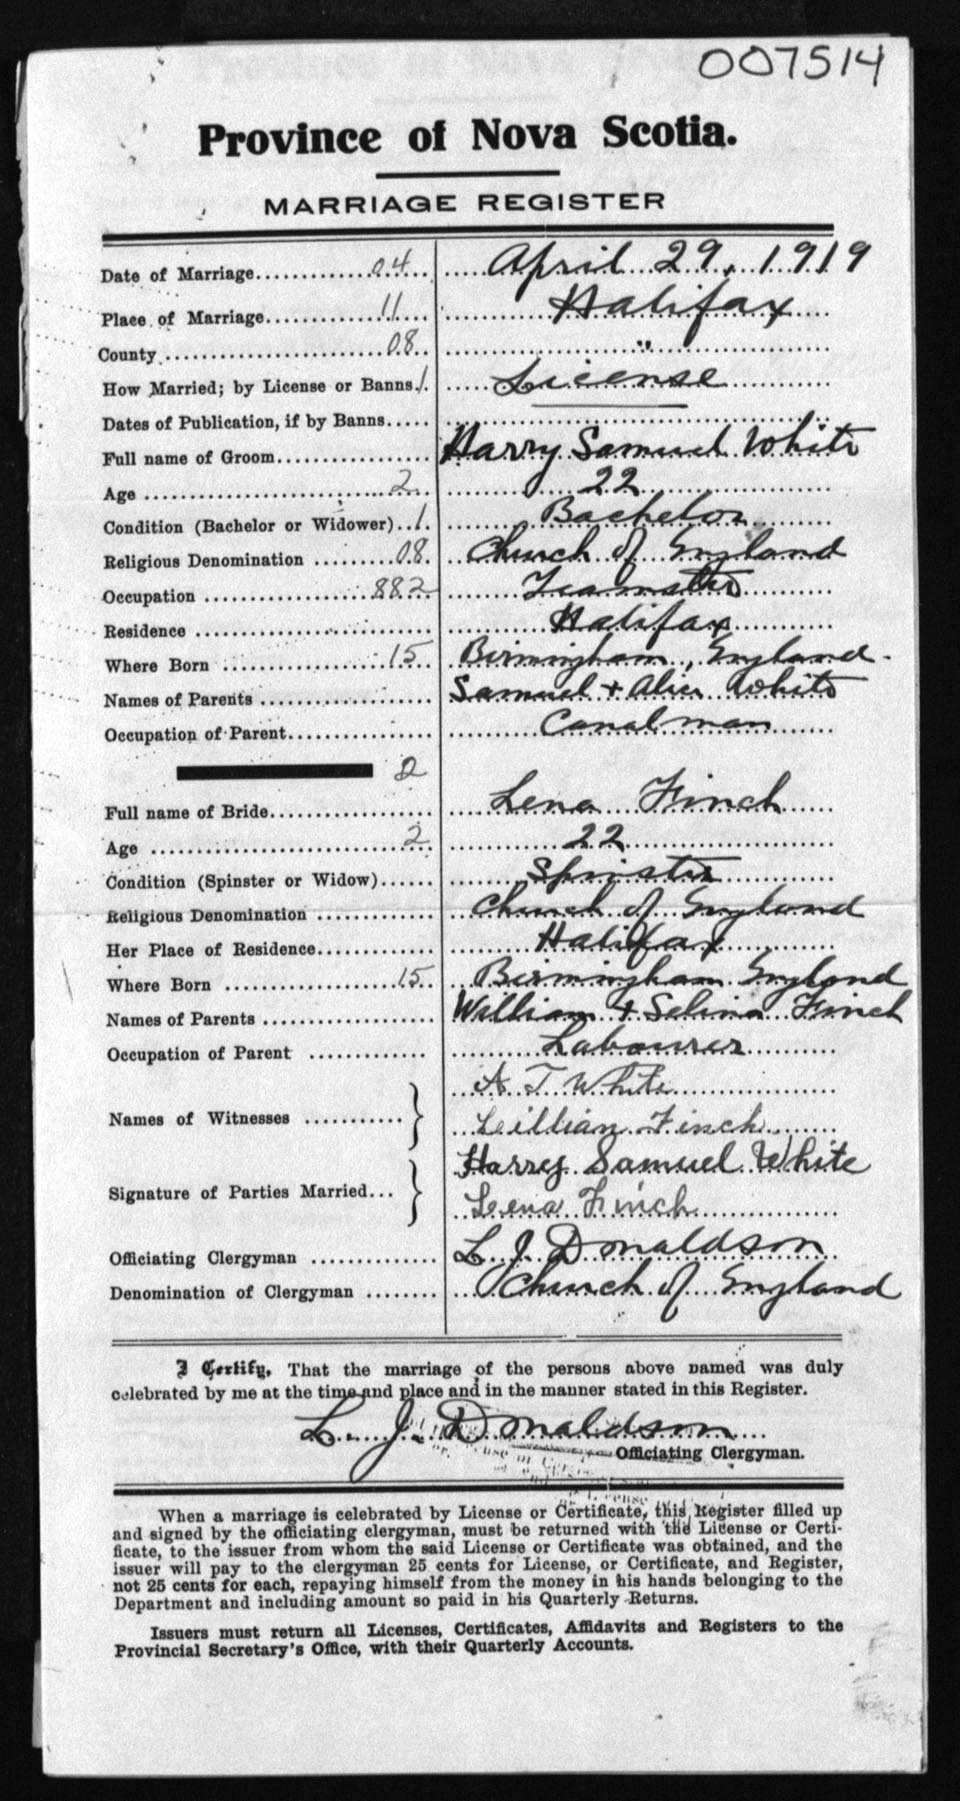 007514
Province of Nova Scotia.
MARRIAGE REGISTER
Date of Marriage............04.. ....April 29, 1919
Place of Marriage............11.... ....Halifax....
County............08.. ...."....
How Married; by License or Banns.1. ....License....
Dates of Publication, if by Banns.....
Full name of Groom.................. Harry Samuel White
Age ............2.. ....22....
Condition (Bachelor or Widower)..1. ....Bachelor....
Religious Denomination .........08 Church of England
Occupation ............882 ....Teamster....
Residence .................. ....Halifax....
Where Born ............15 Birmingham, England.
Names of Parents .................. Samuel + Alice White
Occupation of Parent.................. Canal man
2
Full name of Bride.................. ....Lena Finch....
Age ............2.. ....22....
Condition (Spinster or Widow)...... ....Spinster
Religious Denomination ............ Church of England
Her Place of Residence............ Halifax
Where Born ............15.. Birmingham England
Names of Parents .................. William + Selina Finch
Occupation of Parent ............ ....Labourer....
A T White
Names of Witnesses ............ }
Lillian Finch
Harry Samuel White
Signature of Parties Married... }
Leena Finch
Officiating Clergyman ............ L J Donaldson
Denomination of Clergyman ........ Church of England
I Certify, That the marriage of the persons above named was duly
celebrated by me at the time and place and in the manner stated in this Register.
L. J. Donaldson
Officiating Clergyman.
When a marriage is celebrated by License or Certificate, this Register filled up
and signed by the officiating clergyman, must be returned with the License or Certi-
ficate, to the issuer from whom the said License or Certificate was obtained, and the
issuer will pay to the clergyman 25 cents for License, or Certificate, and Register,
not 25 cents for each, repaying himself from the money in his hands belonging to the
Department and including amount so paid in his Quarterly Returns.
Issuers must return all Licenses, Certificates, Affidavits and Registers to the
Provincial Secretary's Office, with their Quarterly Accounts.